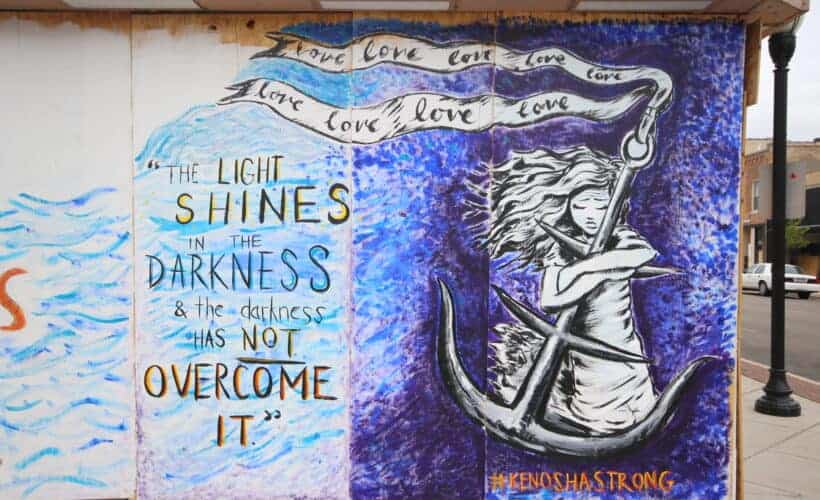 love love love love love
love love love love
"THE LIGHT
SHINES
IN THE
DARKNESS
& the darkness
HAS NOT
OVERCOME
IT."
S
#KENOSHASTRONG